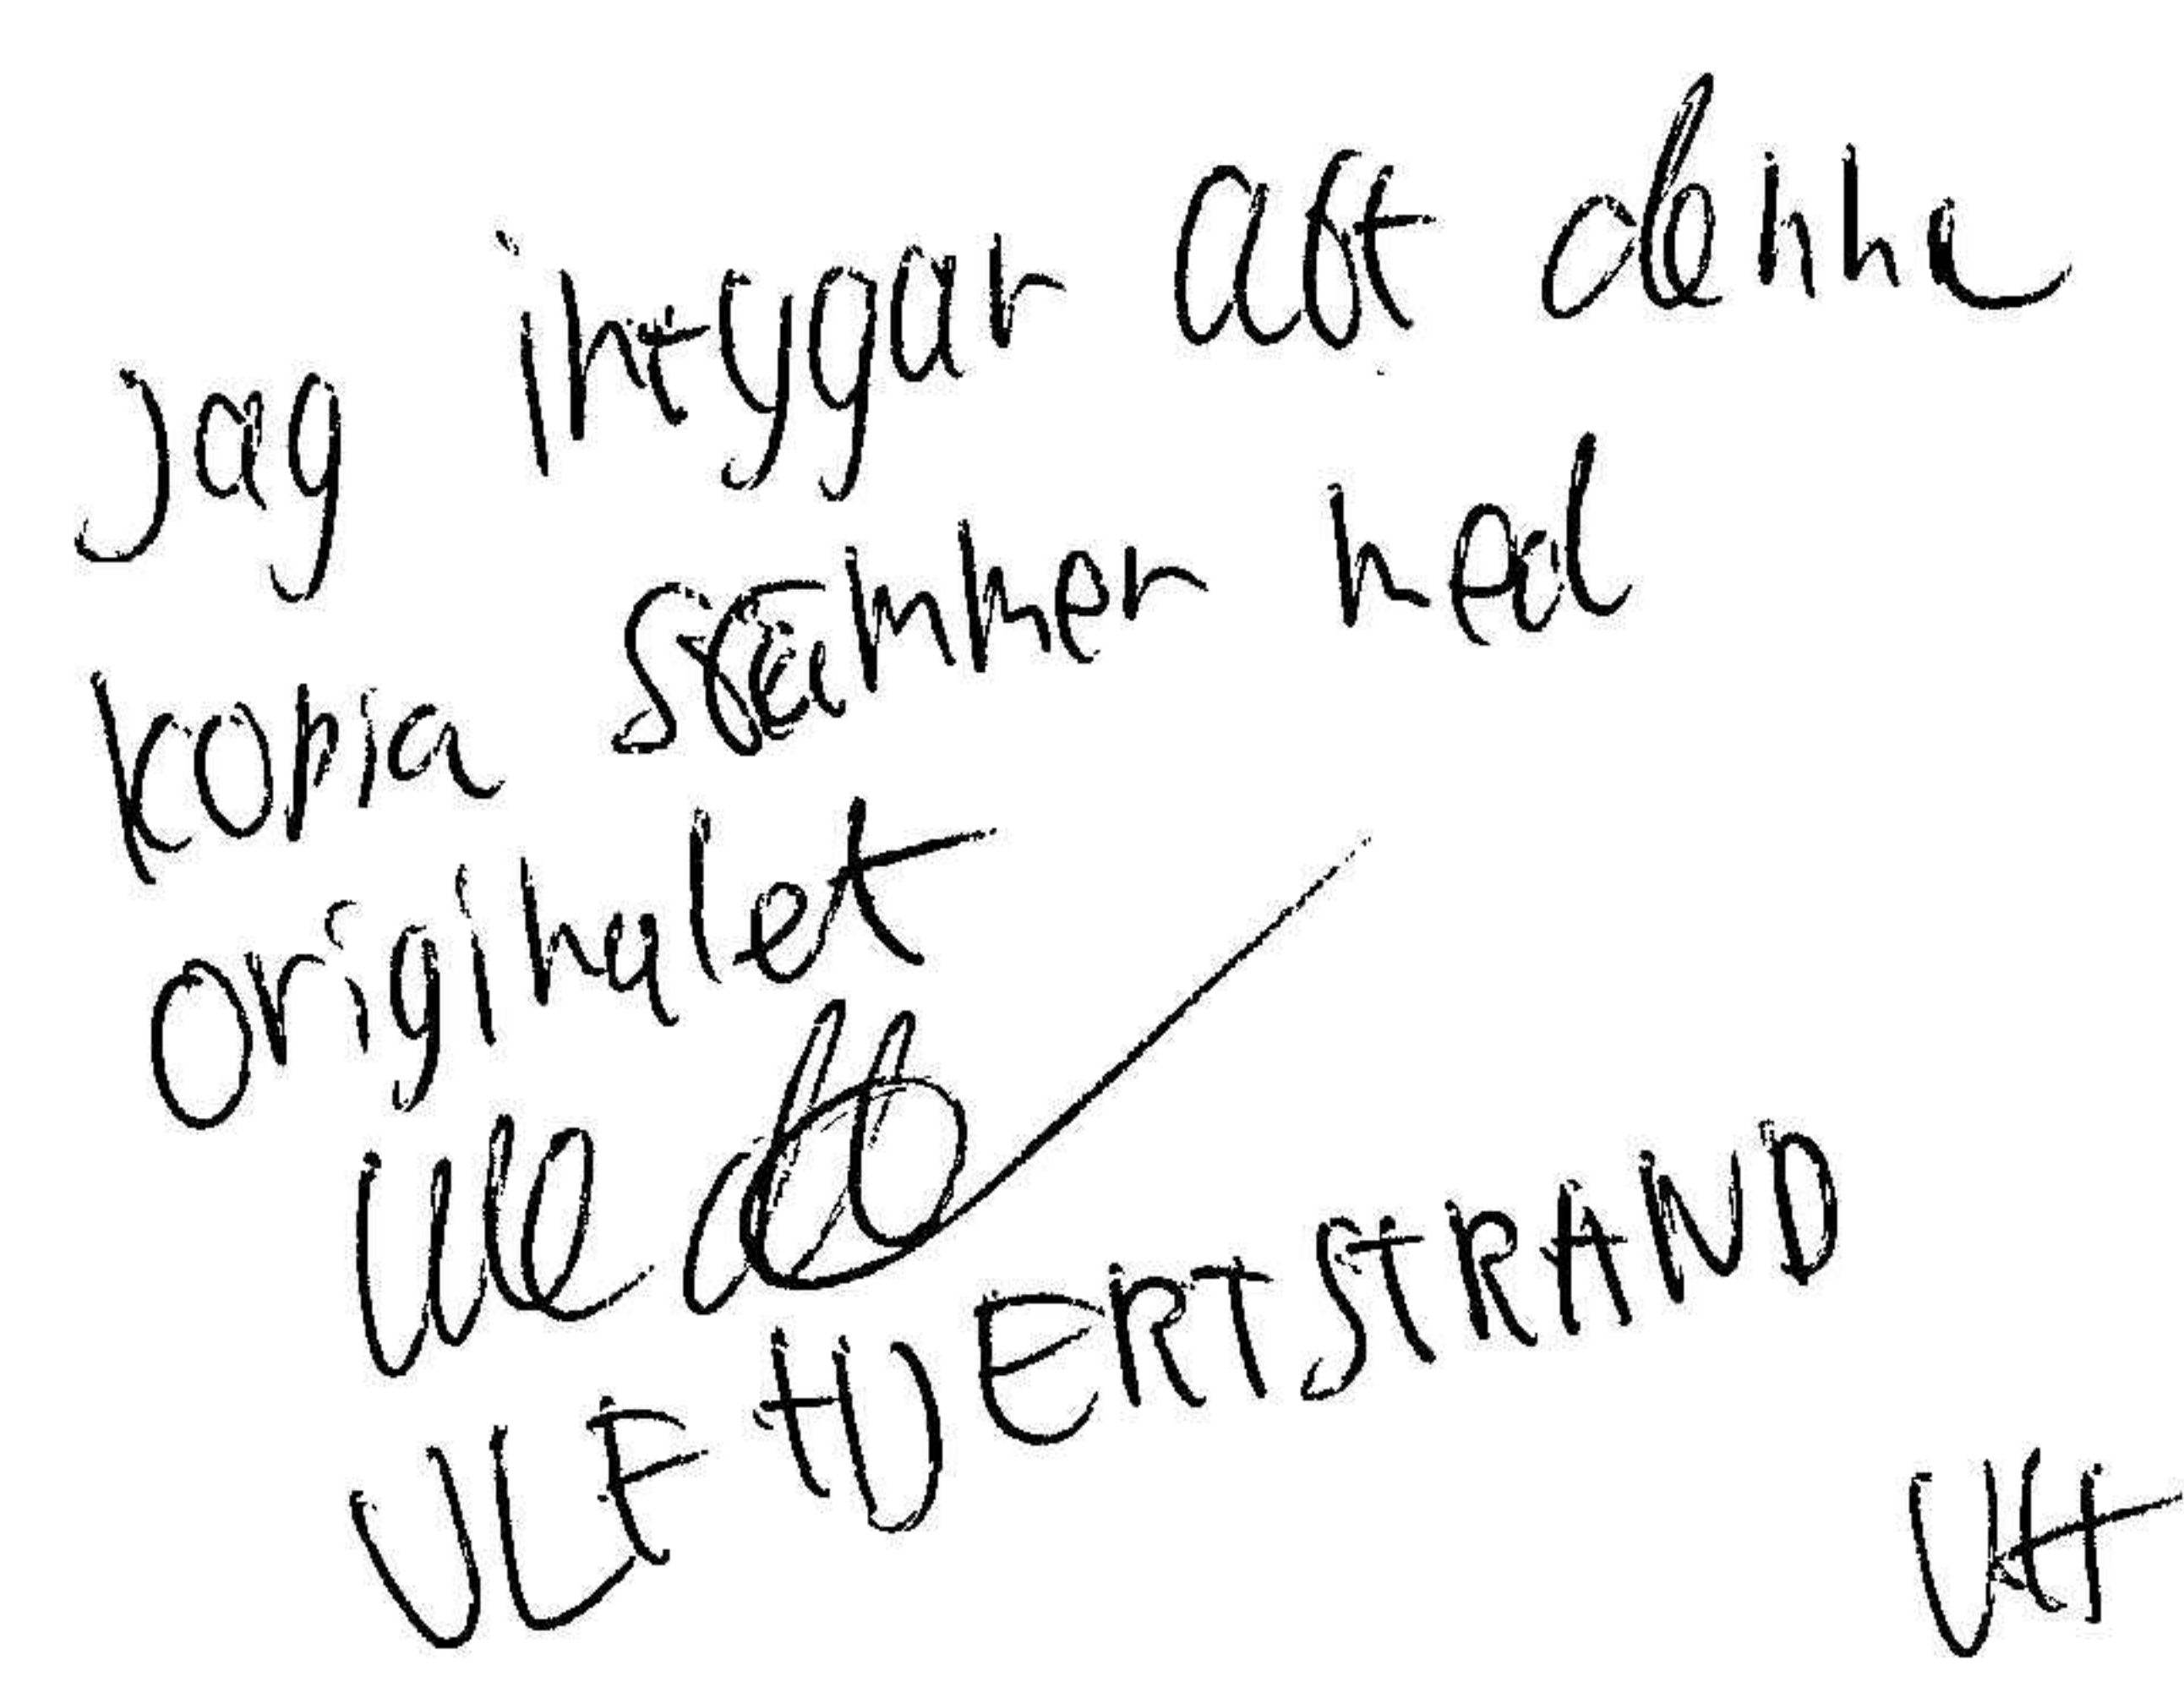 Jag intygar att denna
kopia stämmer med
originalet
ULF HJERTSTRAND
UH